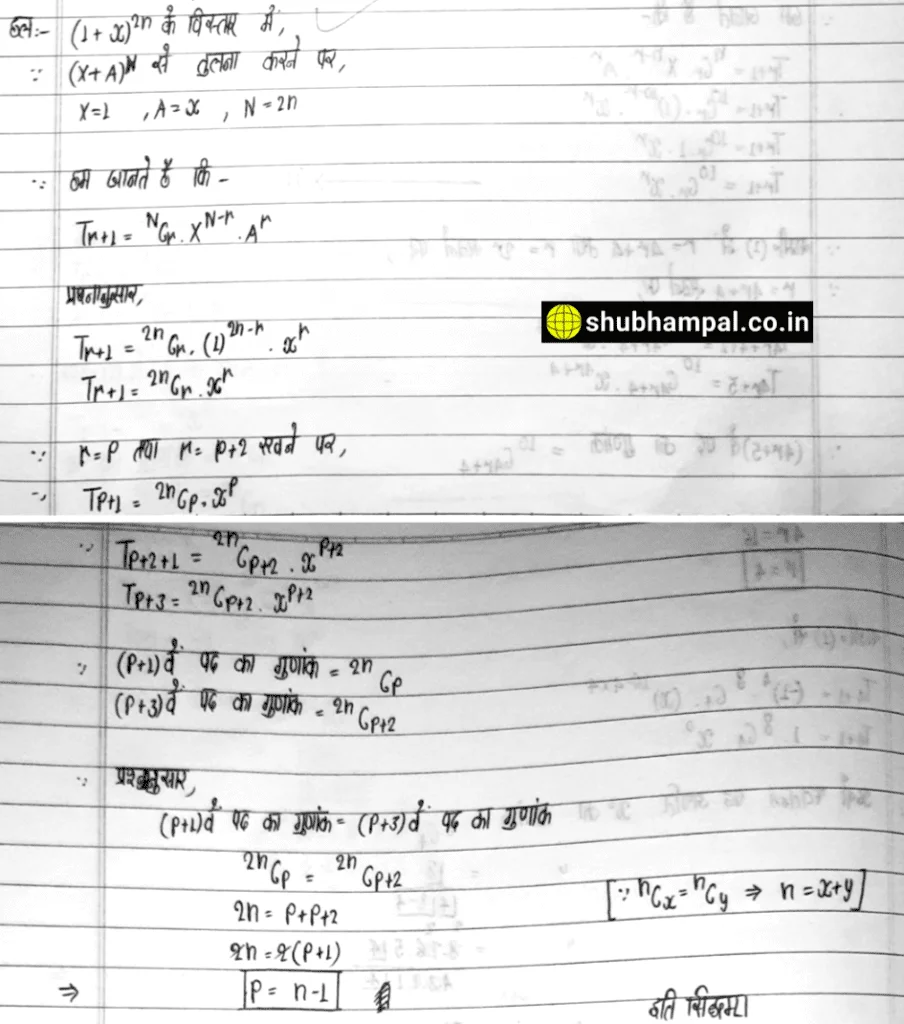 हल:- (1+x)²ⁿ के विस्तार में,
∵ (X+A)ᴺ से तुलना करने पर,
X=1 , A=x , N=2n
∵ हम जानते हैं कि -
Tr+1 = ᴺCr . Xᴺ⁻ʳ . Aʳ
प्रश्नानुसार,
Tr+1 = ²ⁿCr . (1)²ⁿ⁻ʳ . xʳ
shubhampal.co.in
Tr+1 = ²ⁿCr . xʳ
∵ r=P तथा r= P+2 रखने पर,
∵ TP+1 = ²ⁿCP . xᴾ
∵ TP+2+1 = ²ⁿCP+2 . xᴾ⁺²
TP+3 = ²ⁿCP+2 . xᴾ⁺²
∵ (P+1)वें पद का गुणांक = ²ⁿCP
(P+3)वें पद का गुणांक = ²ⁿCP+2
∵ प्रश्नानुसार,
(P+1)वें पद का गुणांक = (P+3)वें पद का गुणांक
²ⁿCP = ²ⁿCP+2
[∵ ⁿCx = ⁿCy ⇒ n = x+y]
2n = P+P+2
2n = 2(P+1)
⇒ P = n-1
इति सिद्धम।